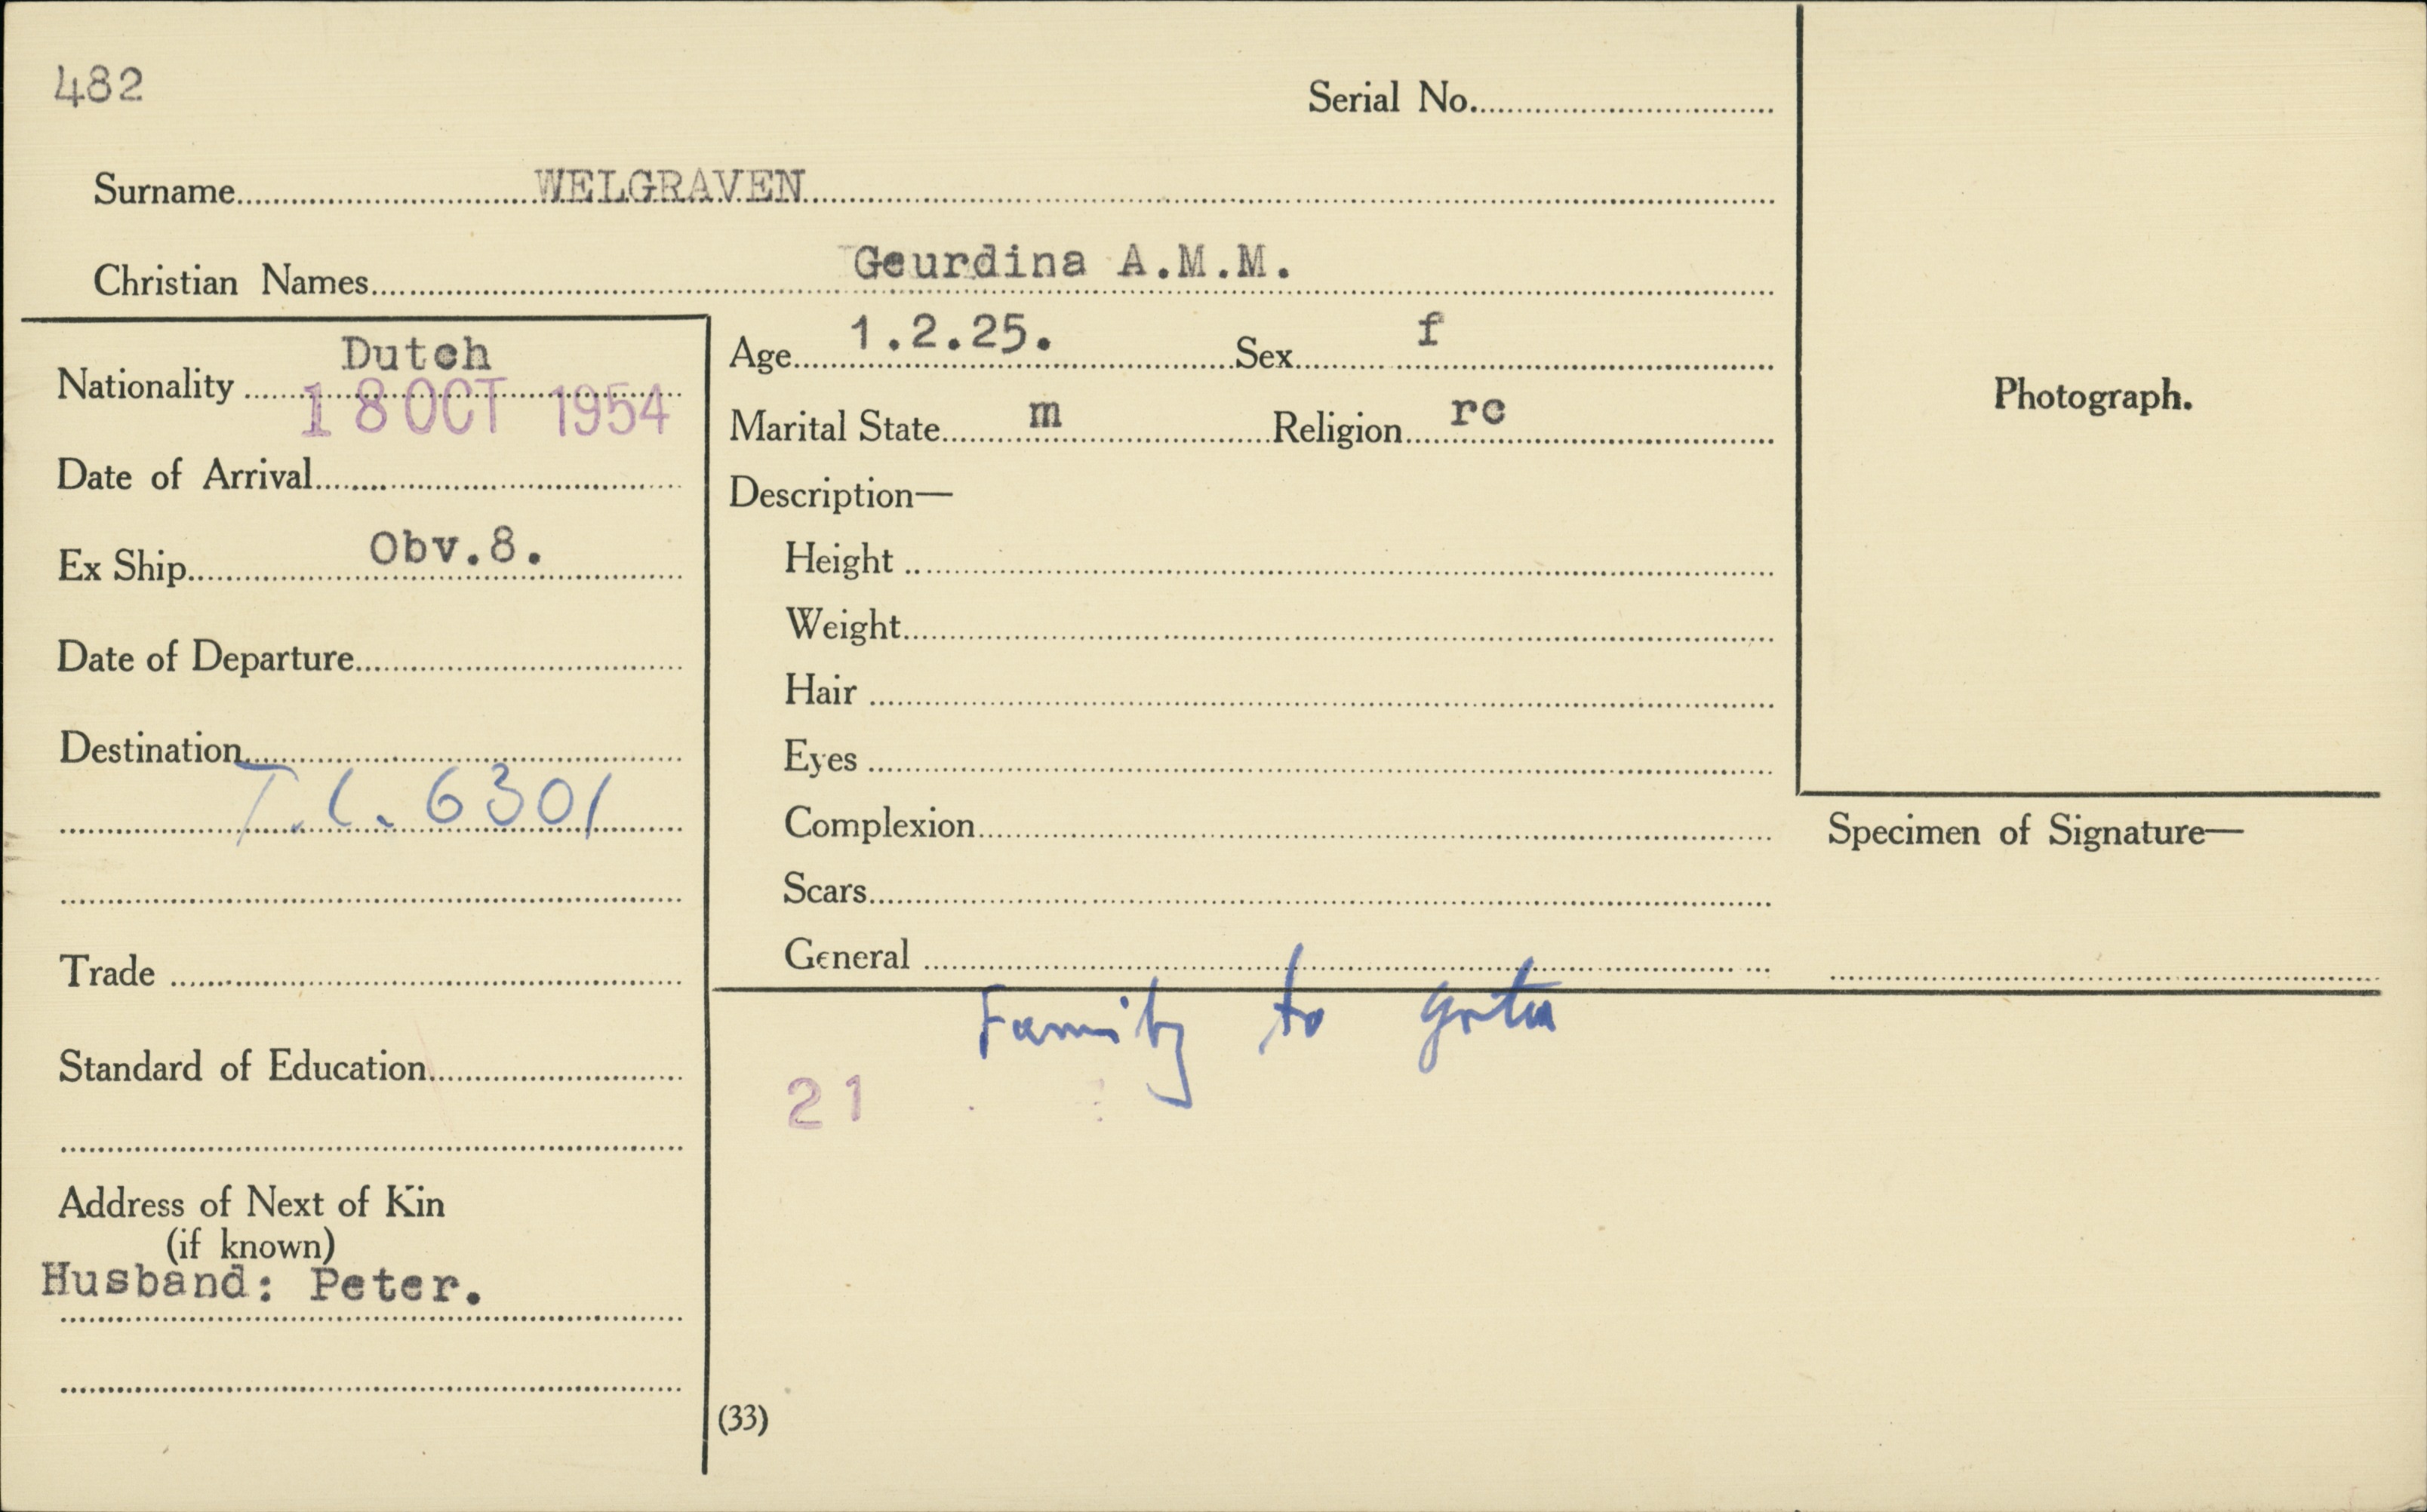 482
Serial No.
Surname WELGRAVEN
Christian Names Geurdina A.M.M.
Nationality Dutch
18 OCT 1954
Date of Arrival
Ex Ship Obv.8.
Date of Departure
Destination
T.C. 6301
Trade
Standard of Education
Address of Next of Kin
(if known)
Husband: Peter.
Age 1.2.25. Sex f
Marital State m Religion rc
Description—
Height
Weight
Hair
Eyes
Complexion
Scars
General
Family to
21
(33)
Photograph.
Specimen of Signature—